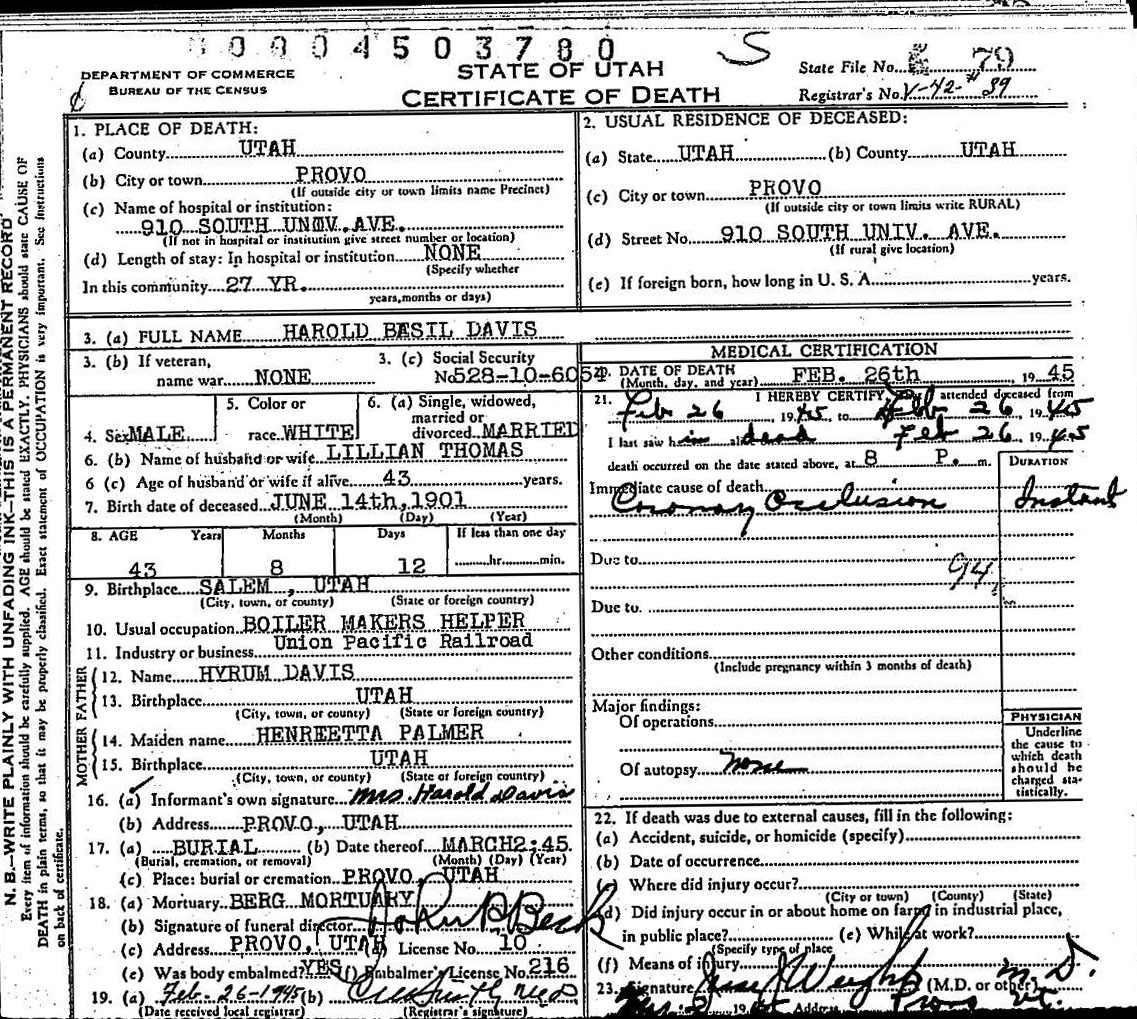 0004503780 S
DEPARTMENT OF COMMERCE
BUREAU OF THE CENSUS
STATE OF UTAH
CERTIFICATE OF DEATH
State File No. 79
Registrar's No. V-42-#39
N. B.—WRITE PLAINLY WITH UNFADING INK—THIS IS A PERMANENT RECORD
Every item of information should be carefully supplied. AGE should be stated EXACTLY. PHYSICIANS should state CAUSE OF
DEATH in plain terms, so that it may be properly classified. Exact statement of OCCUPATION is very important. See Instructions
on back of certificate.
1. PLACE OF DEATH:
(a) County UTAH
(b) City or town PROVO
(If outside city or town limits name Precinct)
(c) Name of hospital or institution:
910 SOUTH UNIV. AVE.
(If not in hospital or institution give street number or location)
(d) Length of stay: In hospital or institution NONE
(Specify whether
In this community 27 YR.
years, months or days)
2. USUAL RESIDENCE OF DECEASED:
(a) State UTAH (b) County UTAH
(c) City or town PROVO
(If outside city or town limits write RURAL)
(d) Street No. 910 SOUTH UNIV. AVE.
(If rural give location)
(e) If foreign born, how long in U. S. A. years.
3. (a) FULL NAME HAROLD BASIL DAVIS
3. (b) If veteran, name war NONE
3. (c) Social Security No. 528-10-6054
4. Sex MALE
5. Color or race WHITE
6. (a) Single, widowed, married or divorced MARRIED
6. (b) Name of husband or wife LILLIAN THOMAS
6 (c) Age of husband or wife if alive 43 years.
7. Birth date of deceased JUNE 14th, 1901
(Month) (Day) (Year)
8. AGE Years Months Days If less than one day
43 8 12 hr. min.
9. Birthplace SALEM, UTAH
(City, town, or county) (State or foreign country)
10. Usual occupation BOILER MAKERS HELPER
11. Industry or business Union Pacific Railroad
FATHER
12. Name HYRUM DAVIS
13. Birthplace UTAH
(City, town, or county) (State or foreign country)
MOTHER
14. Maiden name HENREETTA PALMER
15. Birthplace UTAH
(City, town, or county) (State or foreign country)
16. (a) Informant's own signature Mrs Harold Davis
(b) Address PROVO, UTAH
17. (a) BURIAL (b) Date thereof MARCH 2:45
(Burial, cremation, or removal) (Month) (Day) (Year)
(c) Place: burial or cremation PROVO, UTAH
18. (a) Mortuary BERG MORTUARY
(b) Signature of funeral director John P. Beck
(c) Address PROVO, UTAH License No. 10
(e) Was body embalmed? YES (f) Embalmer's License No. 216
19. (a) Feb. 26-1945 (b)
(Date received local registrar) (Registrar's signature)
MEDICAL CERTIFICATION
20. DATE OF DEATH
(Month, day, and year) FEB. 26th 1945
21. I HEREBY CERTIFY attended deceased from
Feb 26, 1945 to Feb 26, 1945
I last saw him dead Feb 26, 1945
death occurred on the date stated above, at 8 P. m.
DURATION
Immediate cause of death
Coronary Occlusion Instant
Due to 94
Due to
Other conditions
(Include pregnancy within 3 months of death)
Major findings:
Of operations
Of autopsy None
PHYSICIAN
Underline
the cause to
which death
should be
charged sta-
tistically.
22. If death was due to external causes, fill in the following:
(a) Accident, suicide, or homicide (specify)
(b) Date of occurrence
(c) Where did injury occur?
(City or town) (County) (State)
(d) Did injury occur in or about home on farm, in industrial place,
in public place? (e) While at work?
(Specify type of place)
(f) Means of injury
23. Signature M. D. (M.D. or other)
19 Address Provo Ut.